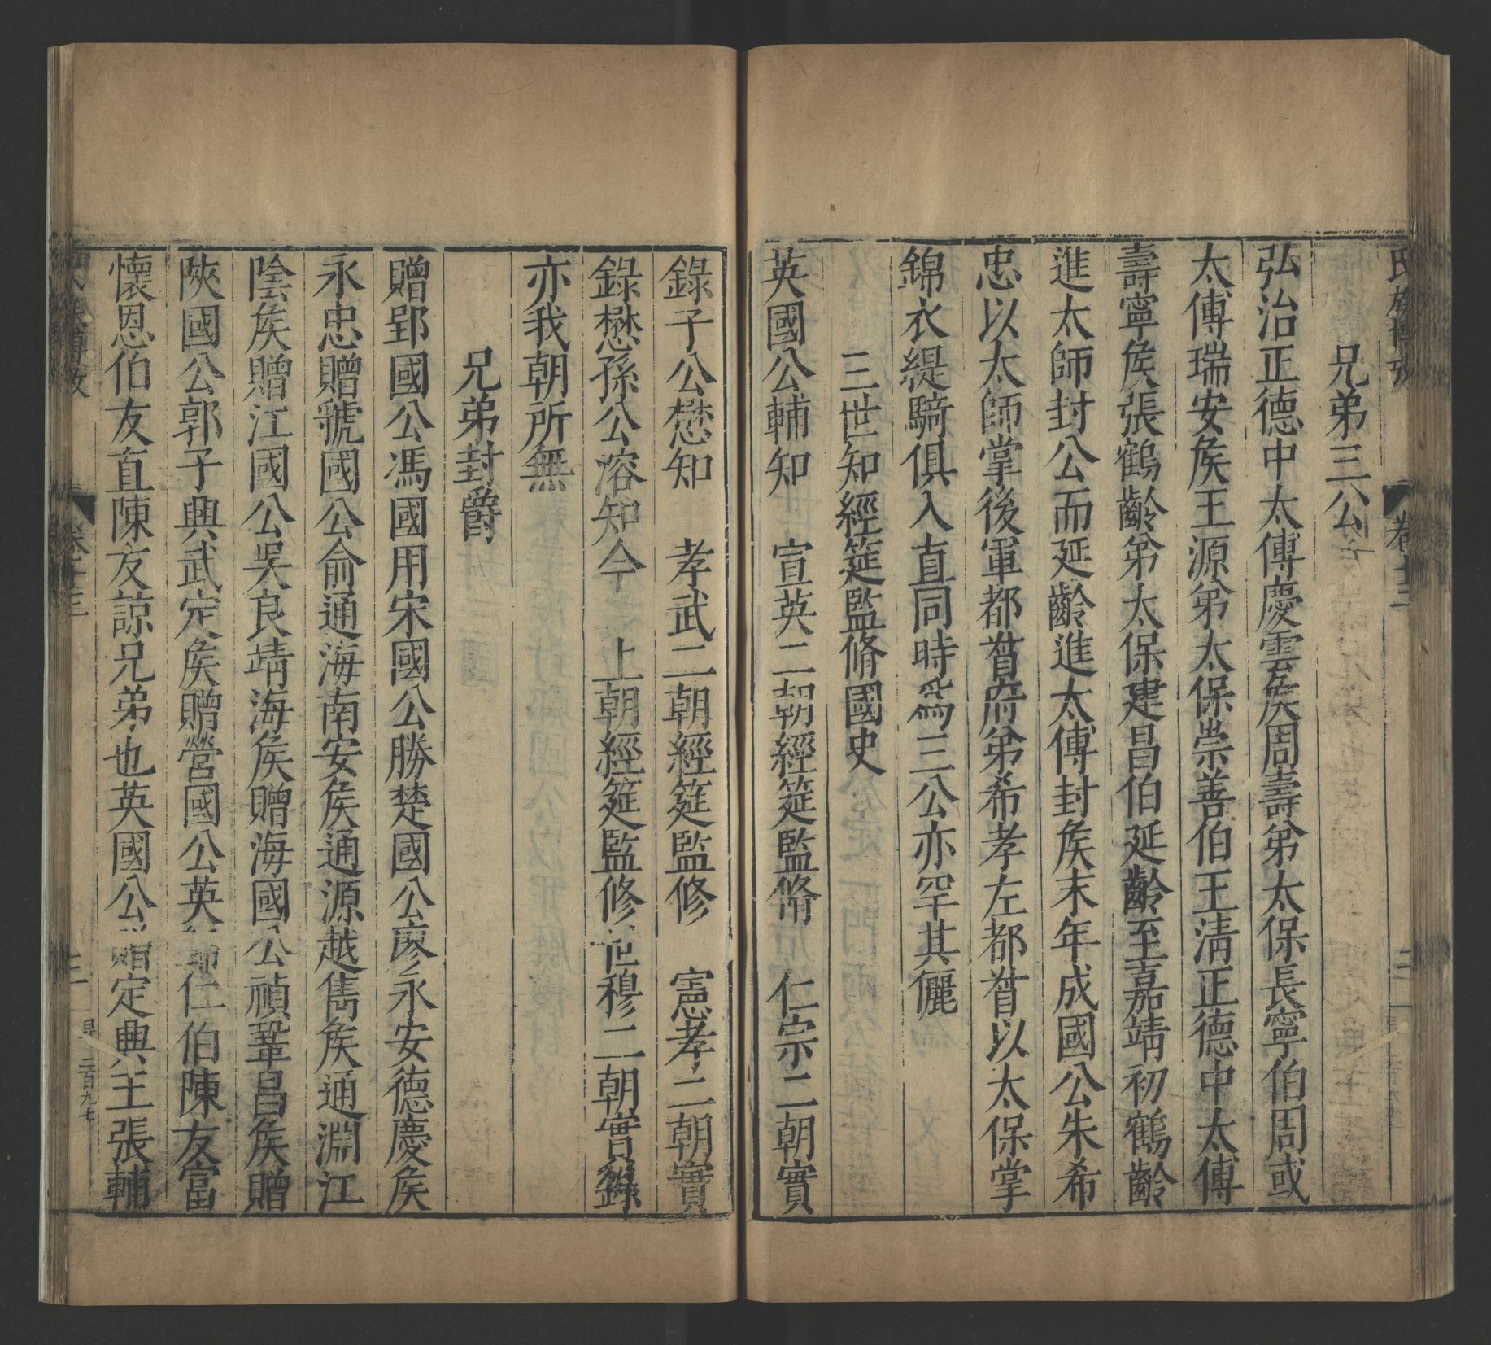 兄弟三公
弘治正德中太傅慶雲矦周壽弟太保長寧伯周或
太傅瑞安矦王源弟太保崇善伯王清正德中太傅
壽寧矦張鶴齡弟太保建昌伯延齡至嘉靖初鶴齡
進太師封公而延齡進太傅封矦末年成國公朱希
忠以太師掌後軍都督府弟希孝左都督以太保掌
錦衣緹騎俱入直同時爲三公亦罕其儷
三世知經筵監脩國史
英國公輔知　宣英二朝經筵監脩　仁宗二朝實
錄子公懋知　孝武二朝經筵監修　憲孝二朝實
錄懋孫公溶知今　上朝經筵監修世穆二朝實錄
亦我朝所無
兄弟封爵
贈郢國公馮國用宋國公勝楚國公廖永安德慶矦
永忠贈虢國公俞通海南安矦通源越雋矦通淵江
陰矦贈江國公吳良靖海矦贈海國公禎鞏昌矦贈
陝國公郭子興武定矦贈營國公英輔仁伯陳友富
懷恩伯友直陳友諒兄弟也英國公贈定興王張輔
卷十三
三